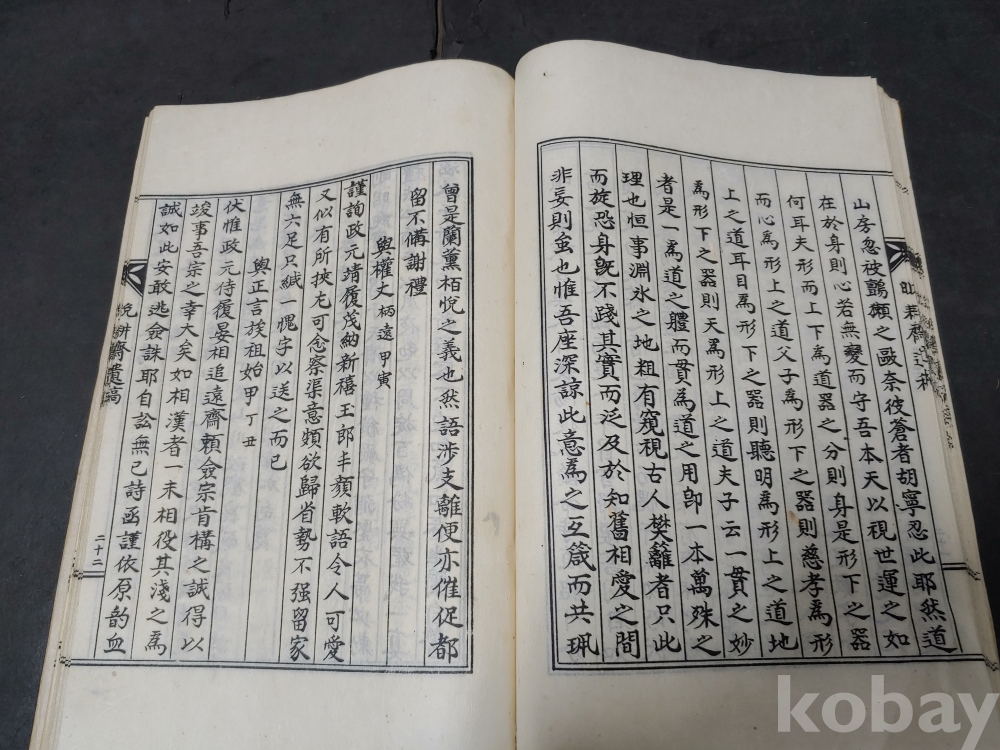 山房忽被鸇獺之毆奈彼蒼者胡寧忍此耶然道
在於身則心若無變而守吾本天以視世運之如
何耳夫形而上下為道器之分則身是形下之器
而心為形上之道父子為形下之器則慈孝為形
上之道耳目為形下之器則聽明為形上之道地
為形下之器則天為形上之道夫子云一貫之妙
者是一為道之軆而貫為道之用卽一本萬殊之
理也恒事淵氷之地粗有窺視古人樊籬者只此
而旋恐身旣不踐其實而泛及於知舊相愛之間
非妄則䖝也惟吾座深諒此意為之互箴而共珮
曾是蘭薰栢悅之義也然語涉支離便亦催促都
留不備謝禮
與權丈 柄遠 甲寅
謹詢政元靖履茂納新禧王郎丰顏軟語令人可愛
又似有所挾尤可念察渠意頗欲歸省勢不强留家
無六足只緘一愧字以送之而已
與正言族祖始甲 丁丑
伏惟政元侍履晏相追遠齋賴僉宗肯構之誠得以
竣事吾宗之幸大矣如相漢者一未相役其淺之為
誠如此安敢逃僉誅耶自訟無已詩函謹依原韵血
晩耕齋遺稿
二十二
kobay